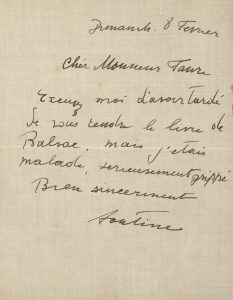 Dimanch. 8 Fevrier
Cher Monsieur Faure
Excusez moi d'avoir tardé
de vous rendre le livre de
Balzac, mais j'etais
malade, serieusement grippé
Bien sincerement
Soutine